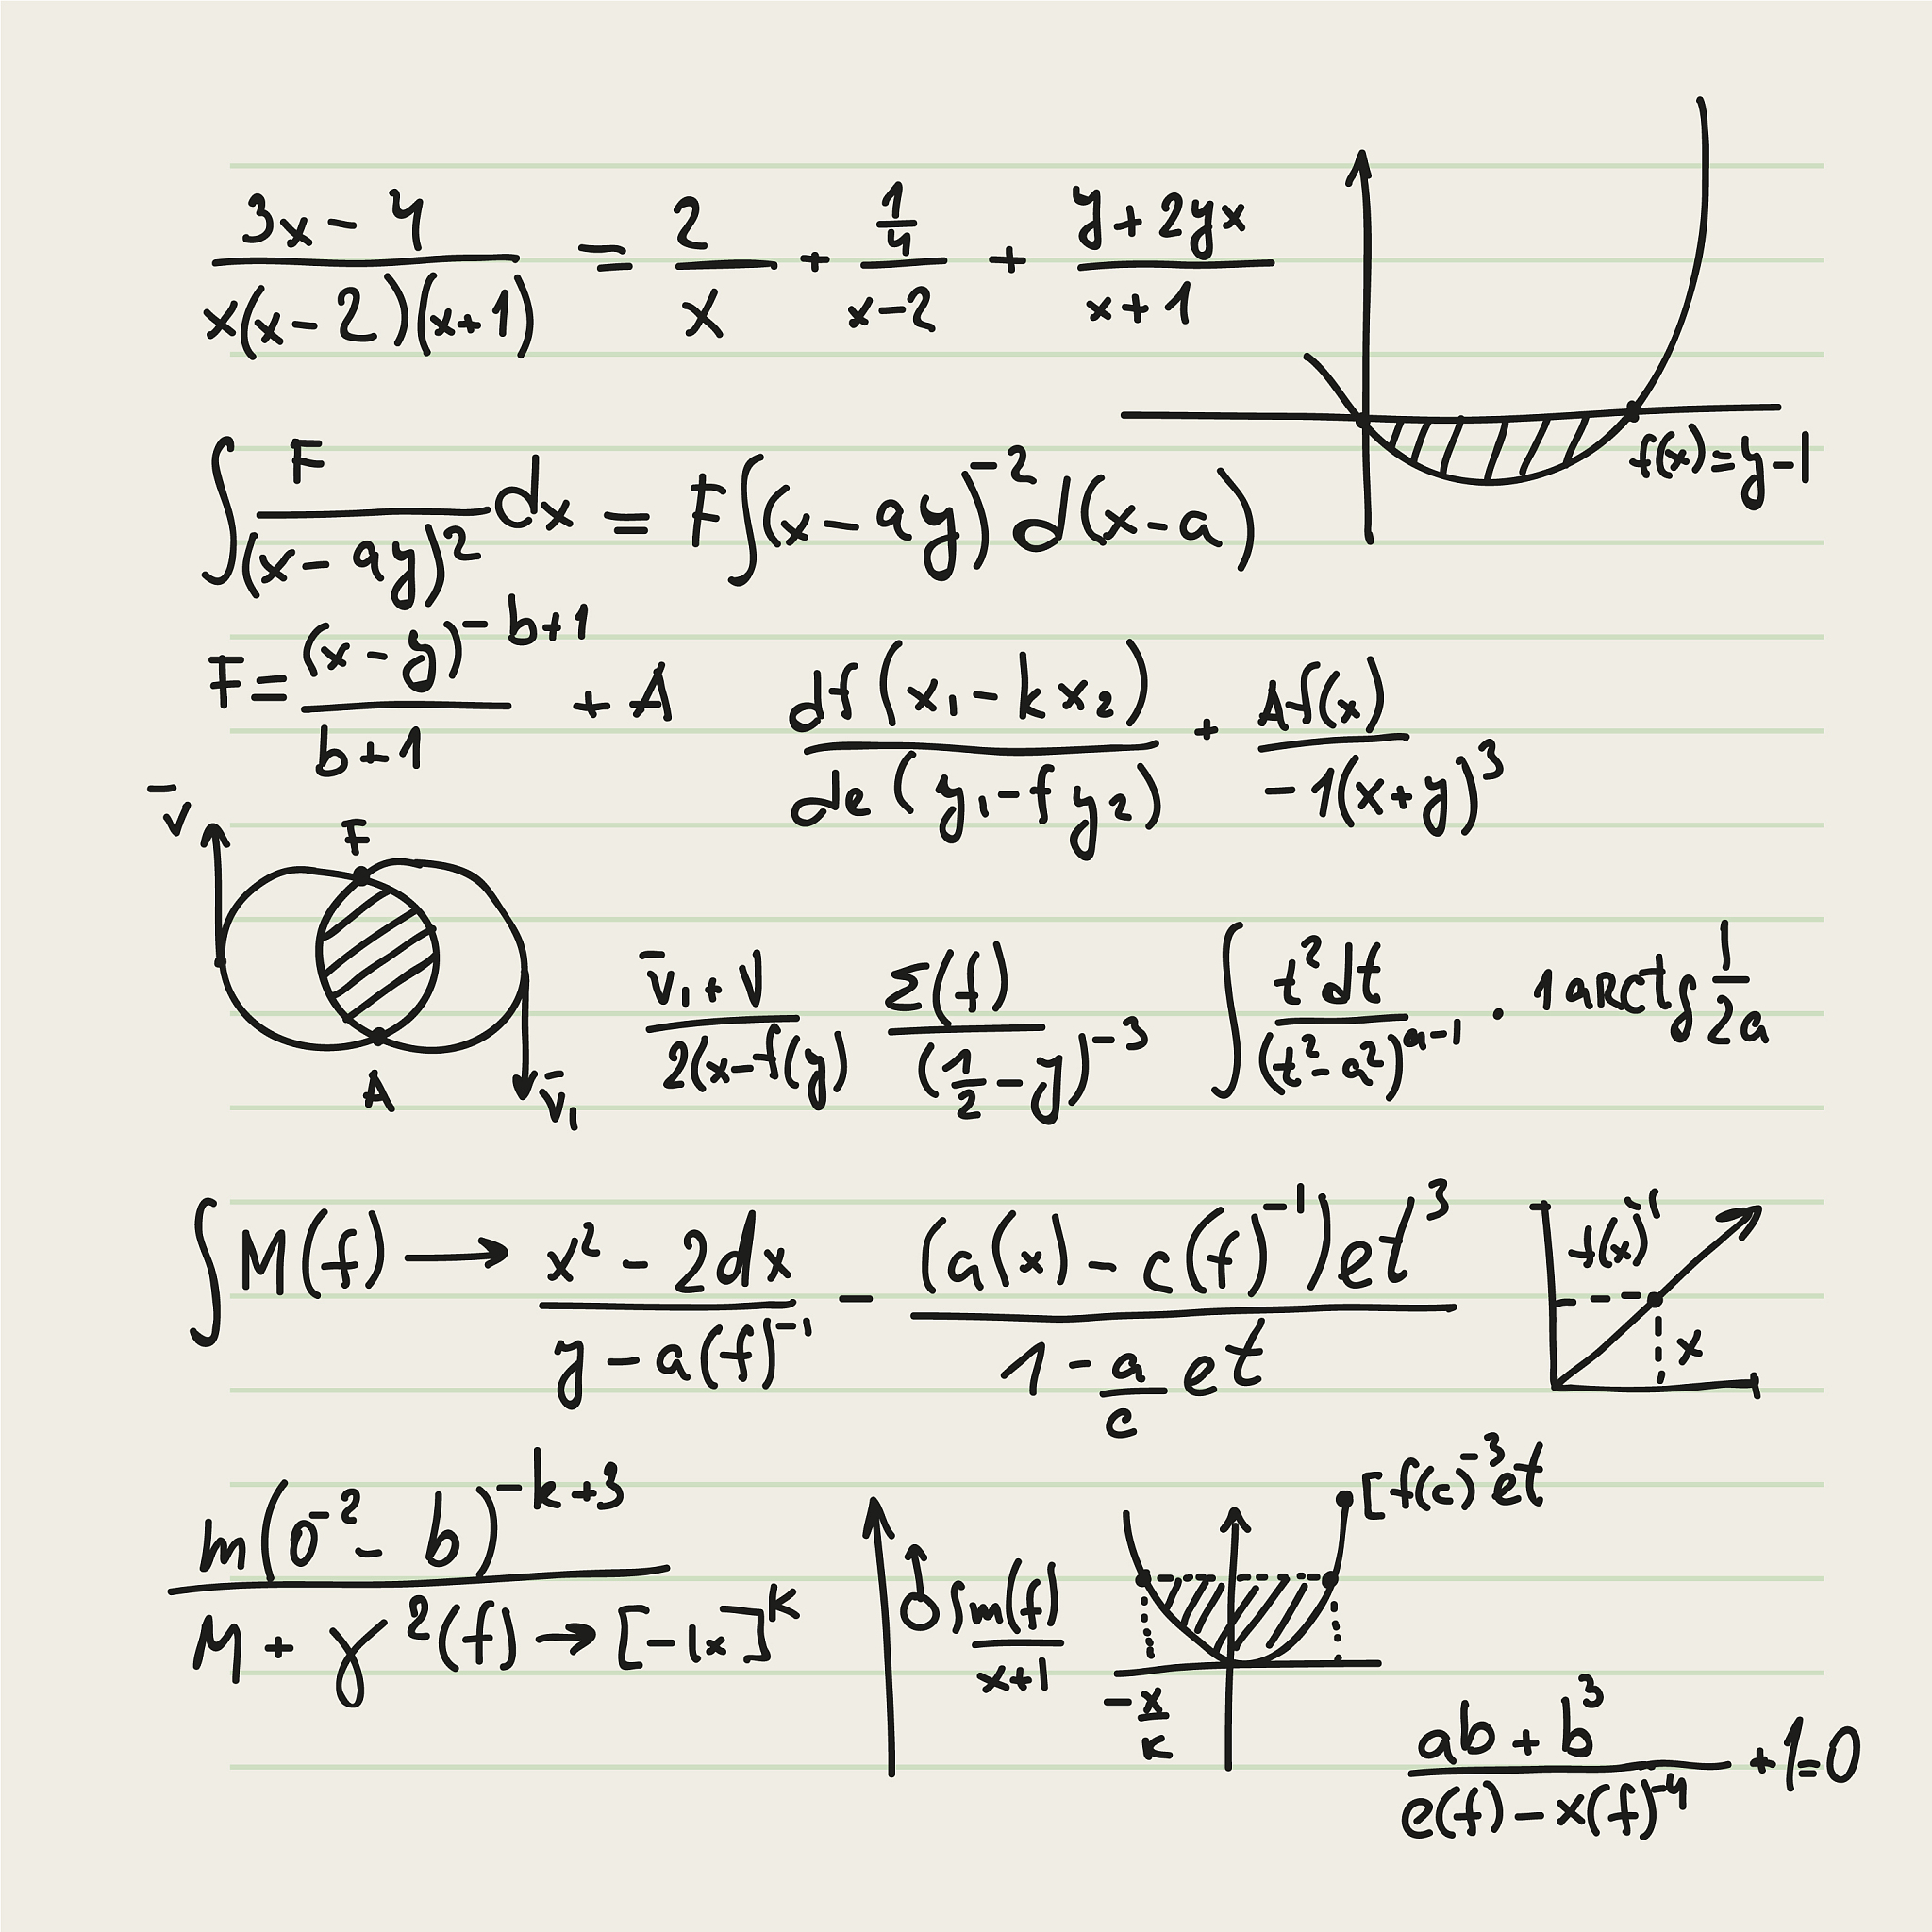 (3x - 4)/(x(x - 2)(x + 1)) = 2/x + (1/4)/(x - 2) + (y + 2yx)/(x + 1)
f(x) = y - 1
∫ F/(x - ay)² dx = F∫(x - ay)⁻² d(x - a)
F = (x - y)^(-b+1)/(b + 1) + A
df(x₁ - kx₂)/de(y₁ - fy₂) + Af(x)/-1(x + y)³
v̄
F
A
v̄₁
(v̄₁ + V)/2(x - f(y) Σ(f)/(1/2 - y)⁻³ ∫ t²dt/(t² - a²)^(a-1) · 1 arctg 1/2a
∫ M(f) → (x² - 2dx)/(y - a(f)⁻¹) - (a(x) - c(f)⁻¹)et³/(1 - a/c et)
f(x)
x
[f(c)⁻³et
m(0⁻² - b)^(-k+3)/(M + γ²(f) → [-1x]^k)
∫m(f)/(x + 1)
-x/k
(ab + b³)/(e(f) - x(f)⁻⁴) + 1 = 0